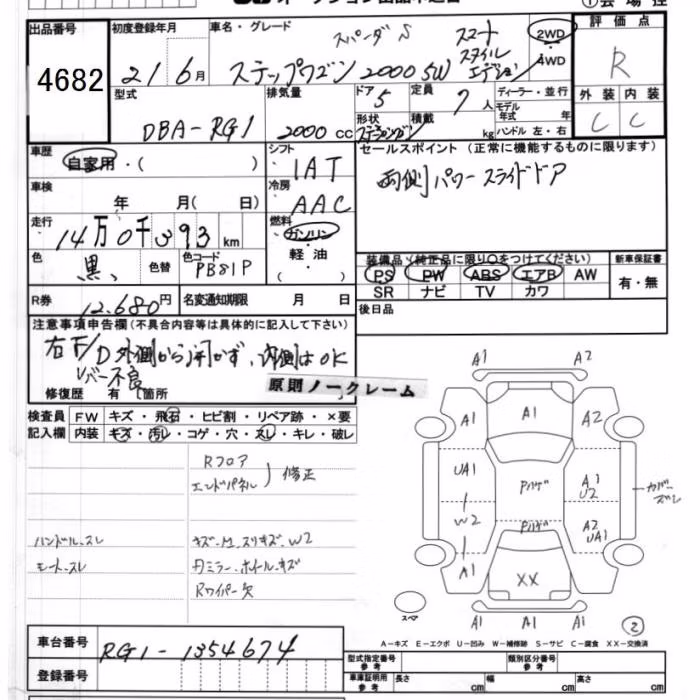 出品番号
4682
初度登録年月
21 6月
車名・グレード
スパーダ S スマート
スタイル
エディション
ステップワゴン 2000 SW
2WD
4WD
評価点
R
外装 内装
C C
型式
DBA-RG1
排気量
2000 cc
ドア 5
定員 7 人
形状
積載 kg
ディーラー・並行
モデル年式 年
ハンドル 左・右
車歴
自家用・( )
シフト
IAT
車検
年 月( 日)
冷房
AAC
走行
14万0千393 km
燃料
ガソリン
・
軽油
色
黒
色替
色コード
PB81P
R券
12,680円
名変通知期限 月 日
セールスポイント (正常に機能するものに限ります)
両側パワースライドドア
装備品(純正品に限り○をつけてください)
PS PW ABS エアB AW
SR ナビ TV カワ
新車保証書
有・無
後日品
注意事項申告欄(不具合内容等は具体的に記入して下さい)
右F/D外側から開かず、内側はOK
レバー不良
修復歴 有 [箇所
原則ノークレーム
検査員
記入欄
FW キズ・飛石・ヒビ割・リペア跡・×要
内装 キズ・汚レ・コゲ・穴・スレ・キレ・破レ
Rフロア
エンドパネル ) 修正
ハンドル、スレ
キズ・M、スリキズ、W2
シート、スレ
ドアミラー、ホイールキズ
Rワイパー欠
A1 A2
A1 A1 A2
UA1 Pハゲ A1
U2
カバー
ズレ
W2 Pハゲ A2
UA1
A1 XX
スペア
A1 A1 A1
②
A-キズ E-エクボ U-凹み W-補修跡 S-サビ C-腐食 XX-交換済
車台番号
RG1-1354674
登録番号
型式指定番号
参考
類別区分番号
参考
車庫証明用
参考
長さ cm 幅 cm 高さ cm